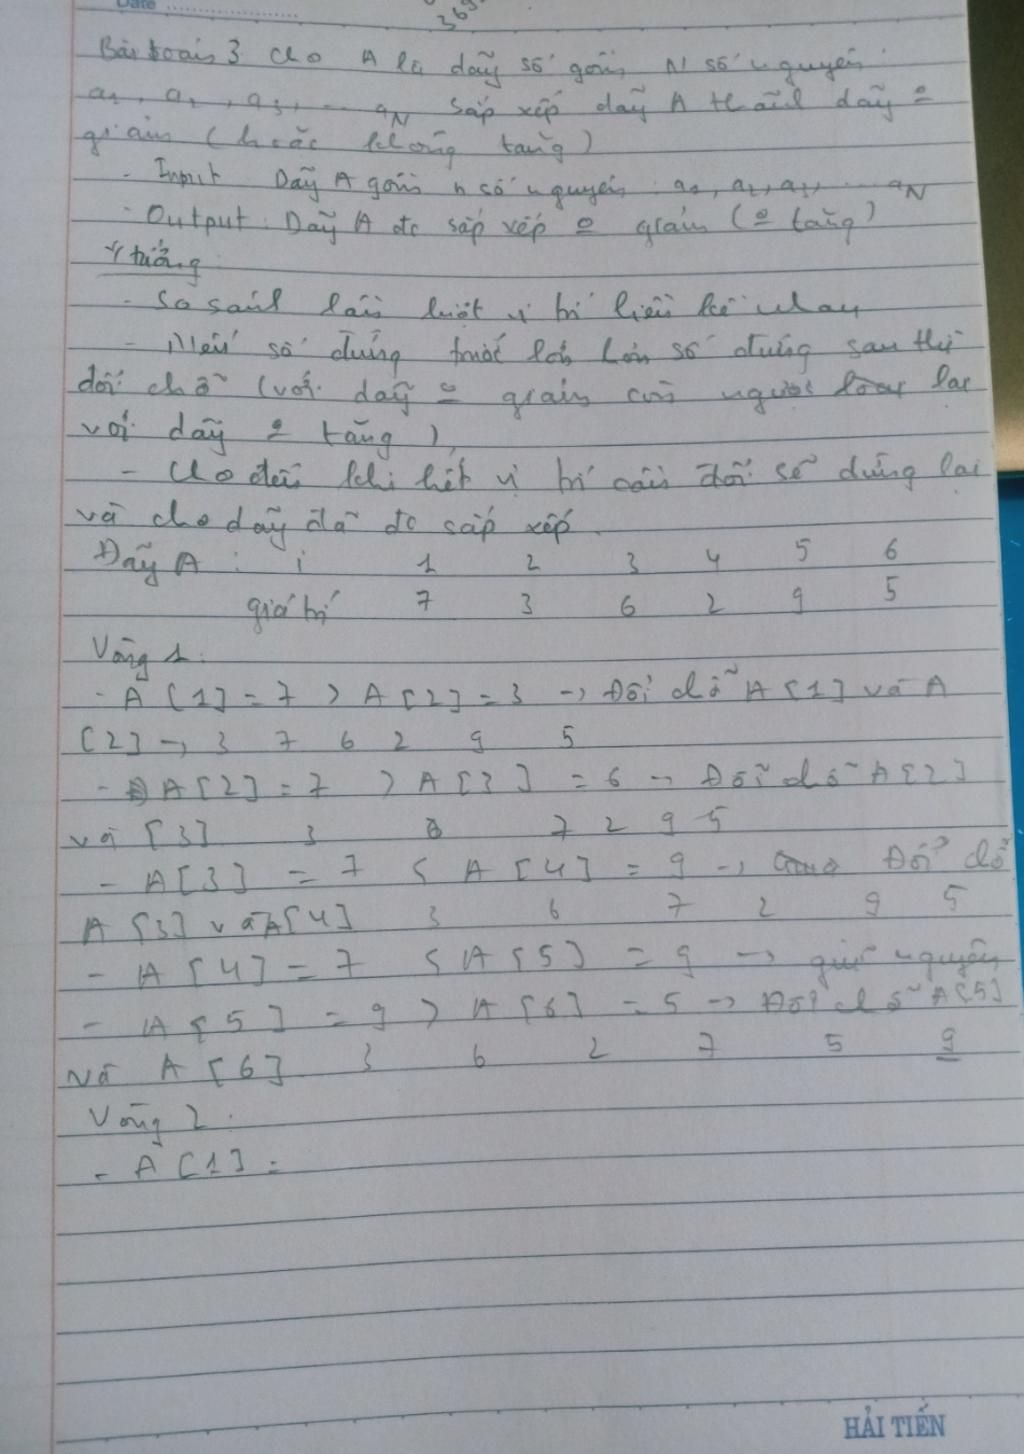 Date
369
Bài toán 3 cho A là dãy số gồm N số nguyên
a1, a2, a3, ... aN sắp xếp dãy A thành dãy =
giảm (hoặc không tăng)
- Input Dãy A gồm n số nguyên: a1, a2, a3, ... aN
- Output: Dãy A đc sắp xếp = giảm (= tăng)
Ý tưởng:
- So sánh lần lượt vị trí liền kề nhau
- Nếu số đứng trước lớn số đứng sau thì
đổi chỗ (với dãy = giảm còn ngược lại
với dãy = tăng)
- Cho đến khi hết vị trí cần đổi sẽ dừng lại
và cho dãy đã đc sắp xếp
Dãy A: i 1 2 3 4 5 6
giá trị 7 3 6 2 9 5
Vòng 1:
- A[1] = 7 > A[2] = 3 → Đổi chỗ A[1] và A
[2] → 3 7 6 2 9 5
- A[2] = 7 > A[3] = 6 → Đổi chỗ A[2]
và [3] 3 6 7 2 9 5
- A[3] = 7 < A[4] = 9 → Đổi chỗ
A[3] và A[4] 3 6 7 2 9 5
- A[4] = 7 < A[5] = 9 → giữ nguyên
- A[5] = 9 > A[6] = 5 → Đổi chỗ A[5]
và A[6] 3 6 2 7 5 9
Vòng 2:
- A[1] =
HẢI TIẾN